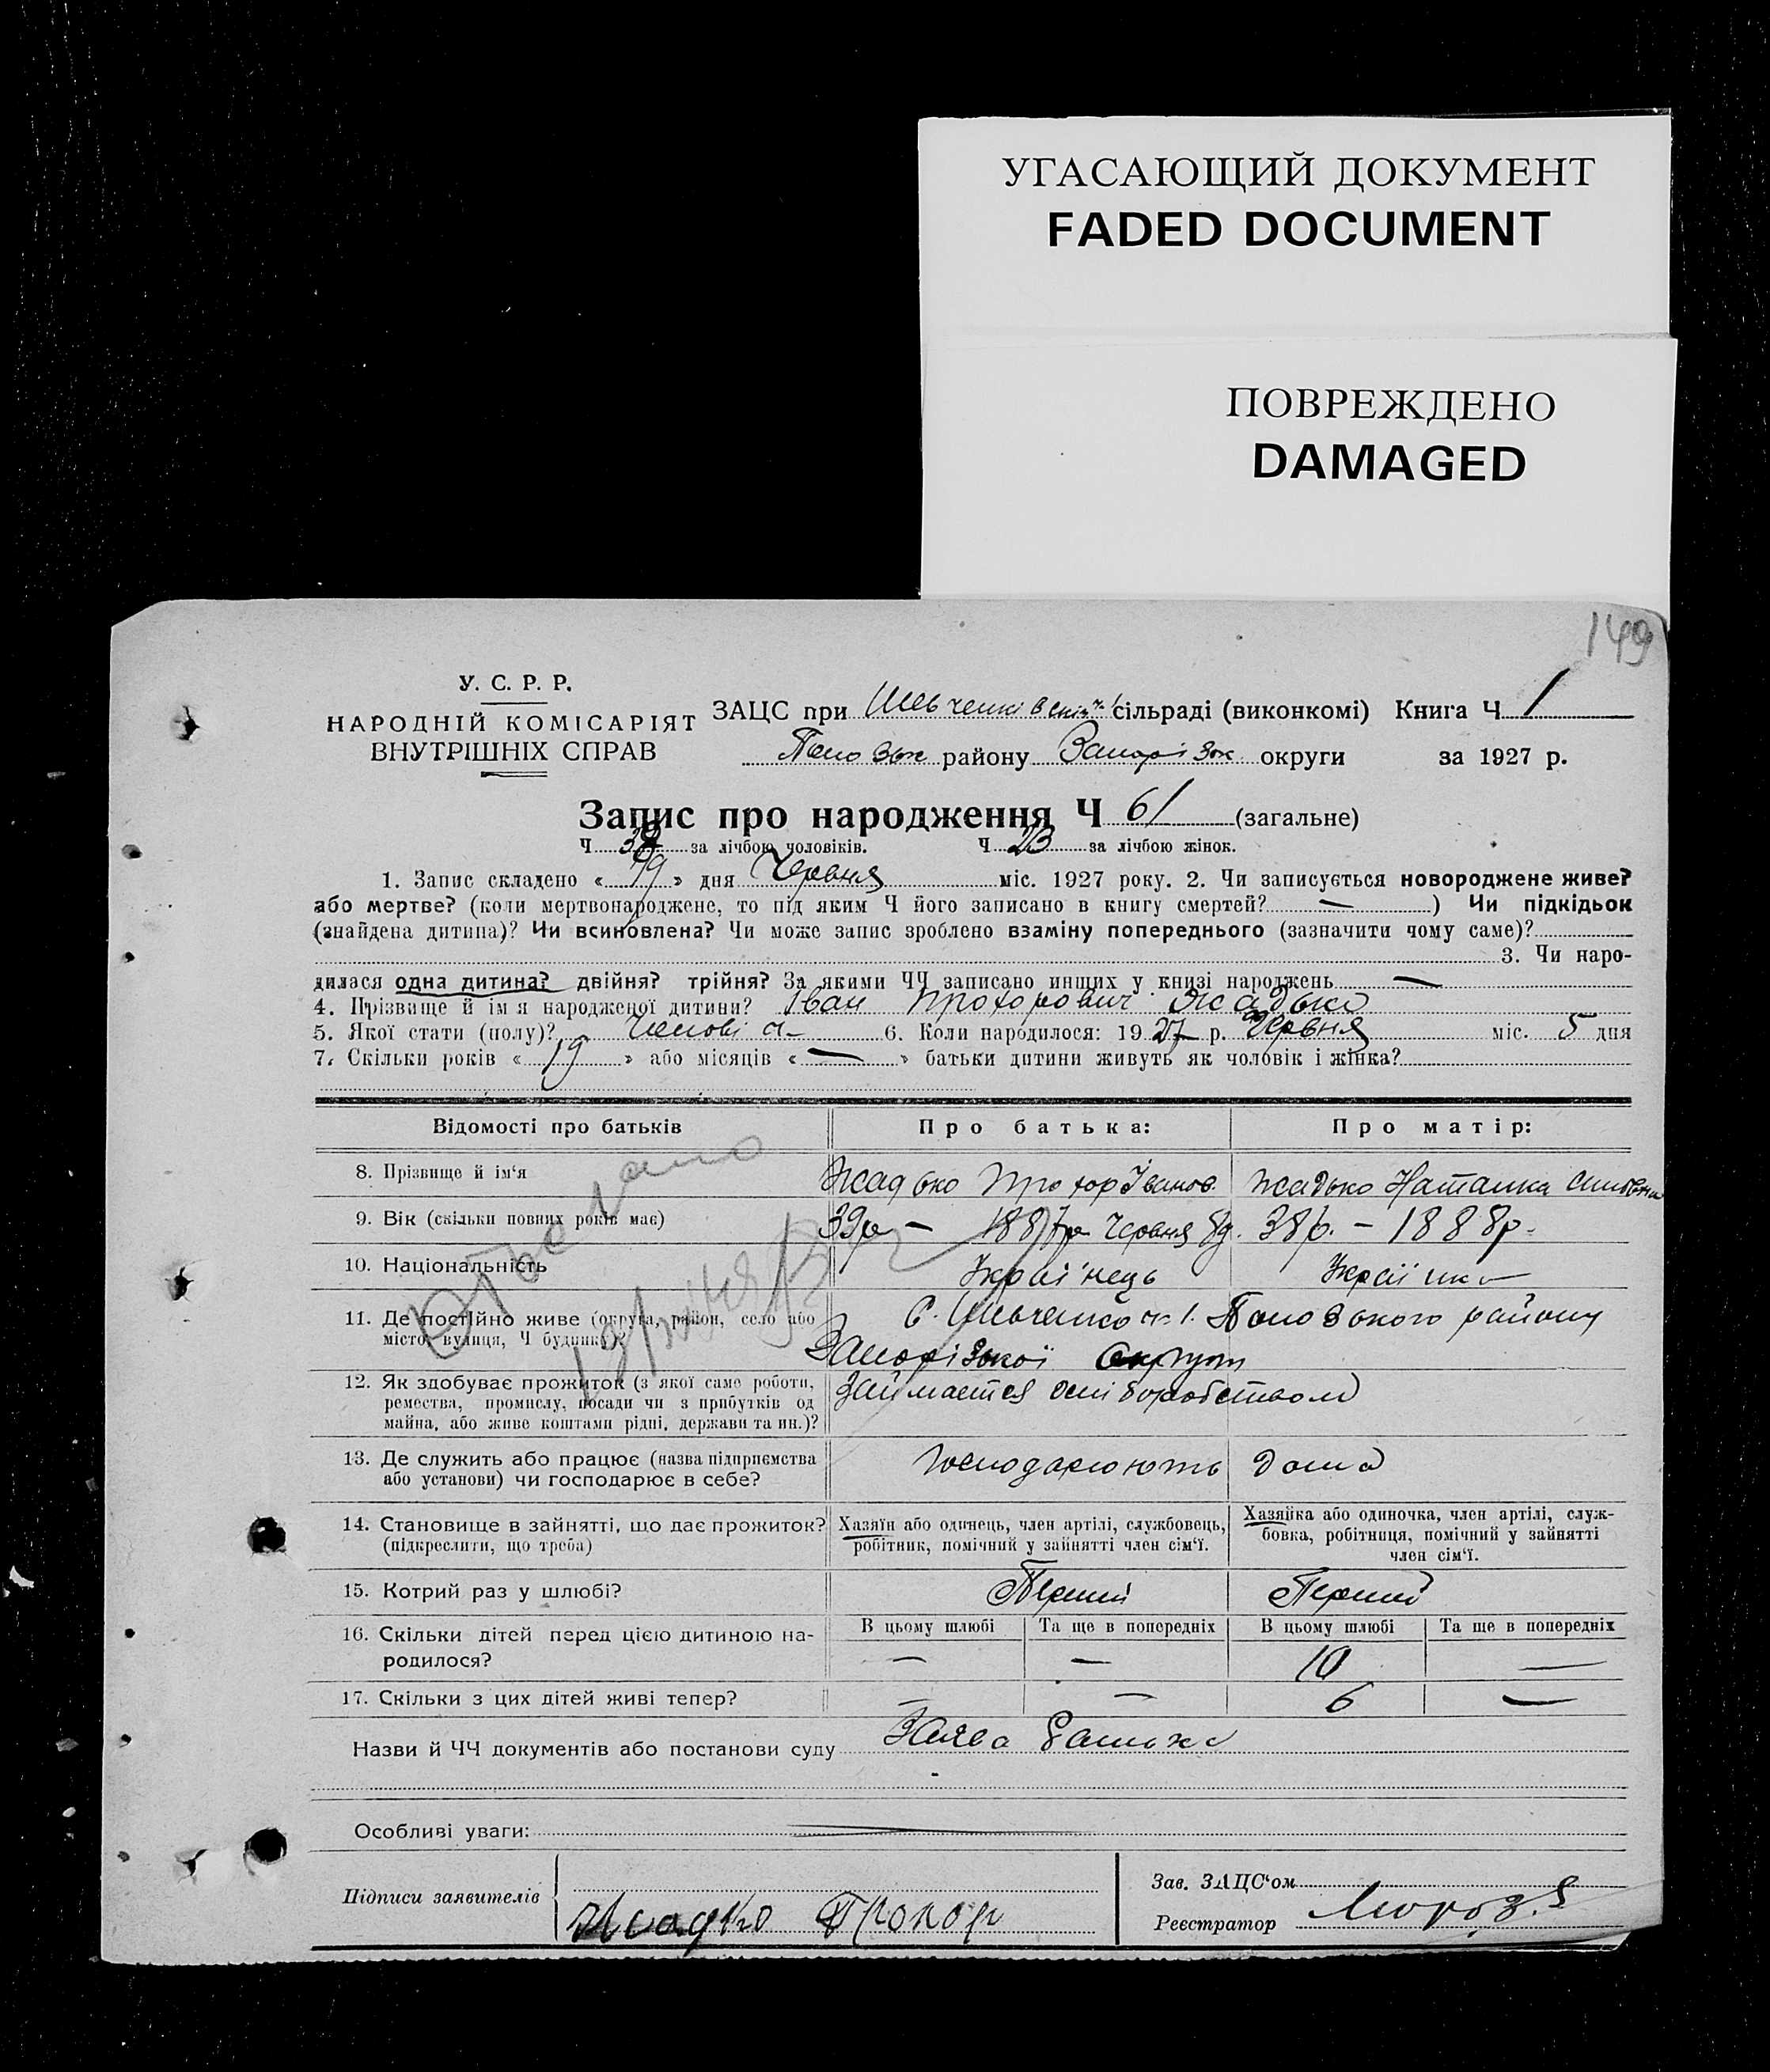 УГАСАЮЩИЙ ДОКУМЕНТ
FADED DOCUMENT
ПОВРЕЖДЕНО
DAMAGED
149
У. С. Р. Р.
НАРОДНІЙ КОМІСАРІЯТ
ВНУТРІШНІХ СПРАВ
ЗАЦС при Шевченківскій ч. 1 сільраді (виконкомі) Книга Ч 1
району Запорізьк округи за 1927 р.
Запис про народження Ч 61 (загальне)
Ч 38 за лічбою чоловіків. Ч 23 за лічбою жінок.
1. Запис складено « 19 » дня Червня міс. 1927 року. 2. Чи записується новороджене живе?
або мертве? (коли мертвонароджене, то під яким Ч його записано в книгу смертей? — ) Чи підкідьок
(знайдена дитина)? Чи всиновлена? Чи може запис зроблено взаміну попереднього (зазначити чому саме)?
3. Чи наро-
дилася одна дитина? двійня? трійня? За якими ЧЧ записано инших у книзі народжень —
4. Прізвище й ім я народженої дитини? Іван Прохорович Жадько
5. Якої стати (полу)? 6. Коли народилося: 1927 р. Червня міс. 5 дня
7. Скільки років « 19 » або місяців « — » батьки дитини живуть як чоловік і жінка?
Відомості про батьків Про батька: Про матір:
8. Прізвище й ім'я Жадько Прохор Іванов. Жадько Наталка
9. Вік (скільки повних років має) 39р — 1887р Червня 8д. 38р. — 1888р.
10. Національність Украї'нець Украіінка
11. Де постійно живе (округа, район, село або С. Шевченко ч. 1. району
місто, вулиця, Ч будинку)? Запорізької Округи
12. Як здобуває прожиток (з якої саме роботи, Займается
ремества, промислу, посади чи з прибутків од
майна, або живе коштами рідні, держави та ин.)?
13. Де служить або працює (назва підприємства Господарюють дома
або установи) чи господарює в себе?
14. Становище в зайнятті, що дає прожиток? Хазяїн або одинець, член артілі, службовець, Хазяйка або одиночка, член артілі, служ-
(підкреслити, що треба) робітник, помічний у зайнятті член сім'ї. бовка, робітниця, помічний у зайнятті
член сім'ї.
15. Котрий раз у шлюбі? Перший Перший
16. Скільки дітей перед цією дитиною на- В цьому шлюбі Та ще в попередніх В цьому шлюбі Та ще в попередніх
родилося? — — 10 —
17. Скільки з цих дітей живі тепер? — — 6 —
Назви й ЧЧ документів або постанови суду Заява батька
Особливі уваги:
Підписи заявителів Жадько Прохор
Зав. ЗАЦС'ом
Реєстратор Мороз